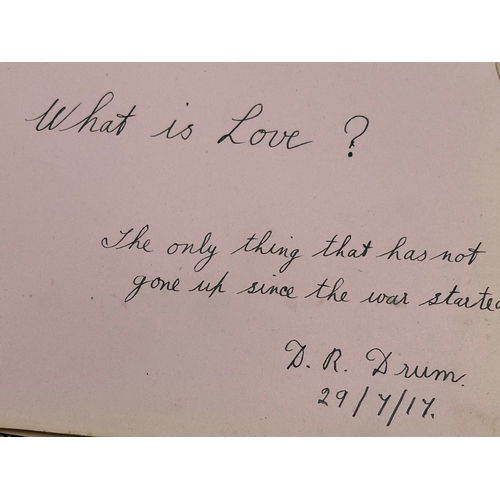 What is Love ?
The only thing that has not
gone up since the war started
D. R. Drum.
29/7/17.